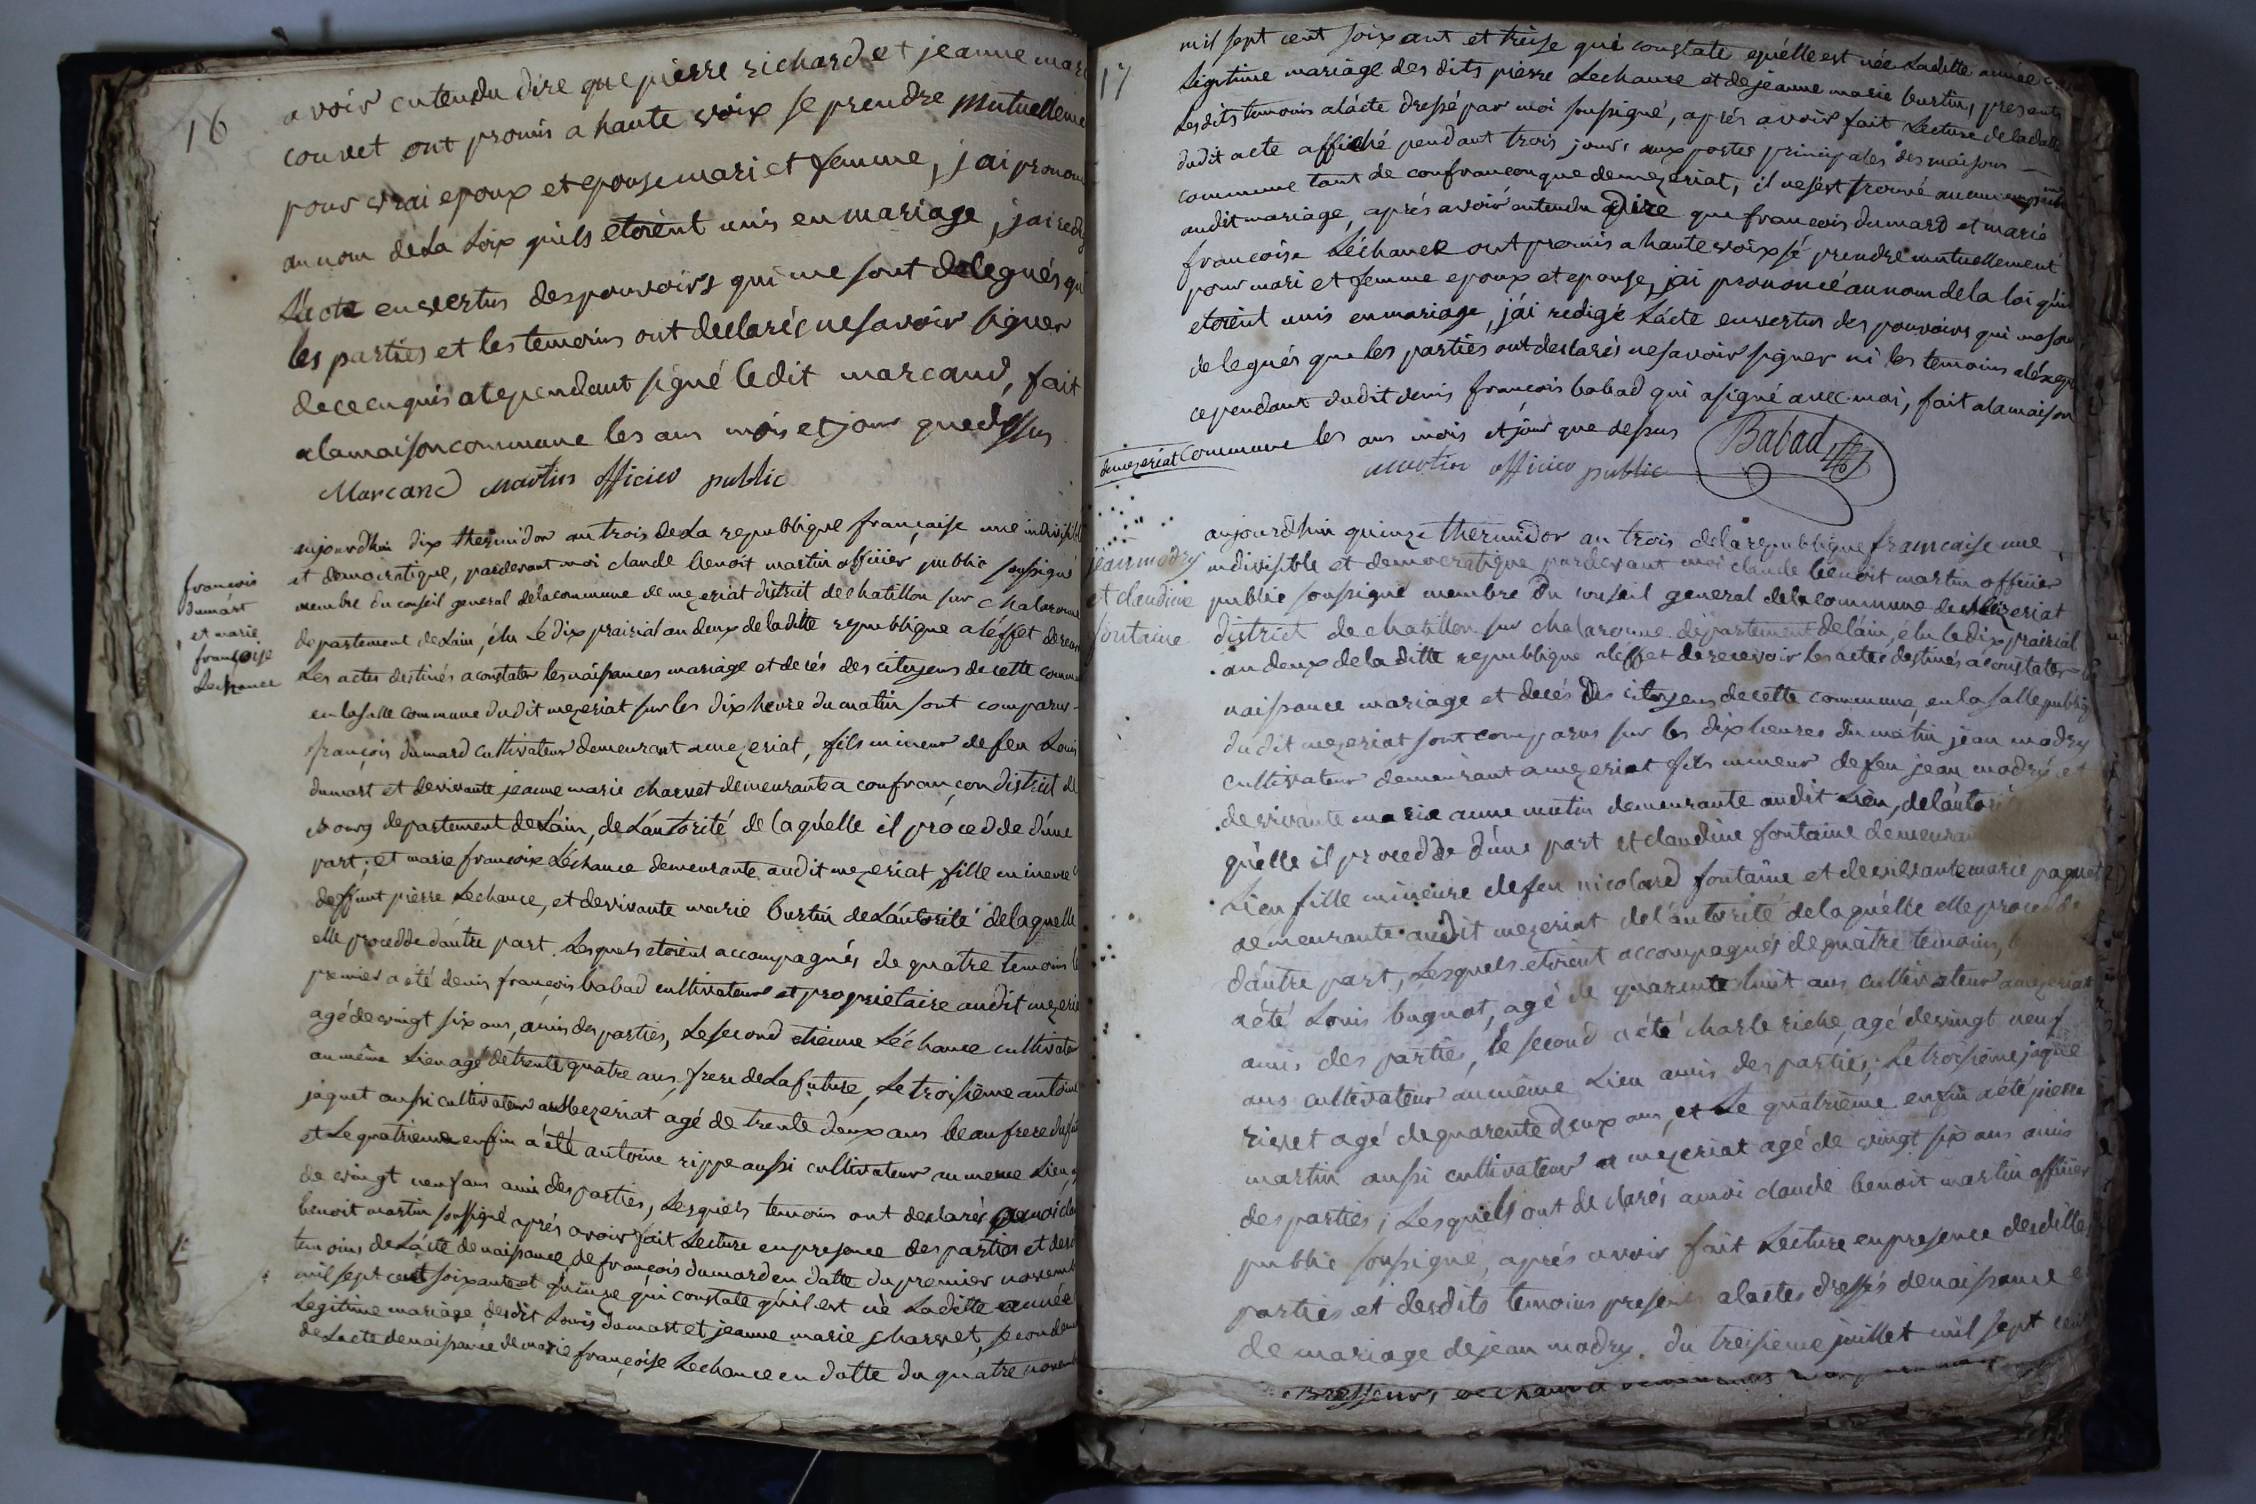 16
avoir entendu dire que pierre richard et jeanne mari
couvet ont promis a haute voix se prendre mutuelleme
pour vrai epoux et epouse mari et femme, j'ai prononc
au nom de La Loix quils etoient unis en mariage, j'ai redi
L'acte en vertus des pouvoirs qui me sont delegués qu
les parties et les temoins ont declarés ne savoir signer
de ce enquis a cependant signé ledit marcand, fait
a la maison commune les ans mois et jour que dessus
Marcand martin officier public
françois
dumart
et marie
françoise
Lechance
aujourdhui dix thermidor an trois de La republique française une indivisibl
et democratique, pardevant moi claude benoit martin officier public soussigné
membre du conseil general de la commune de mezeriat district de chatillon sur chalaronne
departement de Lain, élu Le dix prairial an deux de laditte republique a léffet de recev
Les actes destinés a constater les naissances mariage et decés des citoyens de cette commu
en la salle commune dudit mezeriat sur les dix heure du matin sont comparus
françois dumard cultivateur demeurant a mezeriat, fils mineur de feu Louis
dumart et de vivante jeanne marie charvet demeurante a confrançon district de
bourg departement de Lain, de L'autorité de laquélle il procedde d'une
part; et marie françoise Léchance demeurante audit mezeriat fille mineure
deffunt pierre Lechance, et de vivante marie burtin de L'autorité de laquelle
elle procedde d'autre part Lesquels etoient accompagnés de quatre temoins l
premier a été denis françois babad cultivateur et proprietaire audit mezeria
agé de vingt six ans, amis des parties, Le second etienne Léchance cultivateur
au même Lieu agé de trente quatre ans, frere de La future, Le troisième antoine
jaquet aussi cultivateur a Mezeriat agé de trente deux ans beau frere du fu
et Le quatrieme enfin a été antoine rippe aussi cultivateur au meme Lieu, a
de vingt neuf ans amis des parties, Lesquels temoins ont declarés a moi cla
benoit martin soussigné aprés avoir fait Lecture en presence des parties et desd
temoins de L'acte de naissance de françois dumard en datte du premier novemb
mil sept cent soixante et quinze qui constate qu'il est né Laditte année
Legitime mariage desdit Louis dumart et jeanne marie charvet, secondem
de Lacte de naissance de marie françoise Lechance en datte du quatre novemb
17
mil sept cent soixant et treise qui constate quélle est née Laditte année
Légitime mariage des dits pierre Lechance et de jeanne marie burtin, presents
Lesdits temoins a lácte dressé par moi soussigné, aprés avoir fait Lecture de ladatte
dudit acte affiché pendant trois jours aux portes principales des maisons
commune tant de confrançon que de mezeriat, il ne sést trouvé aucun
audit mariage, aprés avoir entendu Dire que françois dumard et marie
françoise Léchance ont promis a haute voix sé prendre mutuellement
pour mari et femme epoux et epouse, j'ai prononcé au nom de la loi qu'ils
etoient unis en mariage, j'ái redigé Lácte en vertus des pouvoirs qui me son
delegués que les parties ont declarés ne savoir signer ni les temoins a l'éxep
cependant dudit denis françois babad qui a signé avec moi, fait a la maison
de mezeriat commune les ans mois et jour que dessus Babad
martin officier public
jean modry
et claudine
fontaine
aujourdhui quinze thermidor an trois de la republique francaise une
indivisible et democratique pardevant moi claude benoit martin officier
public soussigné membre du conseil general de la commune de Mezeriat
district de chatillon sur chalaronne departement de láin, élu le dix prairial
an deux de la ditte republique a leffet de recevoir les actes destinés a constater
naissance mariage et decés Des citoyens de cette commune, en la salle publiq
dudit mezeriat sont comparus sur les dix heures du matin jean modry
cultivateur demeurant a mezeriat fils mineur de feu jean modry et
de vivante marie anne mutin demeurante audit Lieu, de láutori
quélle il procedde d'une part et claudine fontaine demeuran
Lieu fille mineure de feu nicolard fontaine et de vivante marie paquet
demeurante audit mezeriat de l'áutorité de laquélle elle procedde
dáutre part, Lesquels etoient accompagnés de quatre temoins,
a été Louis bugnot, agé de quarente huit ans cultivateur a mezeriat
amis des parties, le second a été charle riche, agé de vingt neuf
ans cultivateur au même Lieu amis des parties; Le troisième jaque
rivet agé de quarente deux ans, et Le quatrième enfin a été pierre
martin aussi cultivateur a mezeriat agé de vingt six ans amis
des parties; Lesquels ont declarés a moi claude benoit martin officier
public soussigné, aprés avoir fait Lecture en presence desdittes
parties et desdits temoins presents a lactes dressés de naissance et
de mariage de jean modry. du treisieme juillet mil sept cent